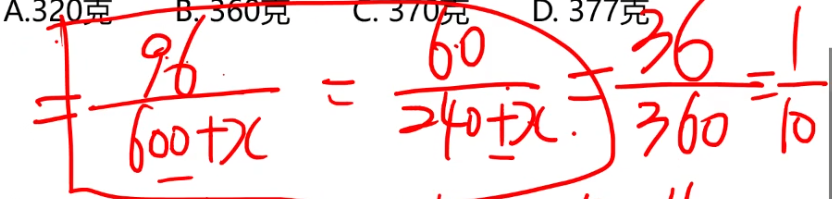 A.320克 B. 360克 C. 370克 D. 377克
= 96/600+x = 60/240+x = 36/360 = 1/10